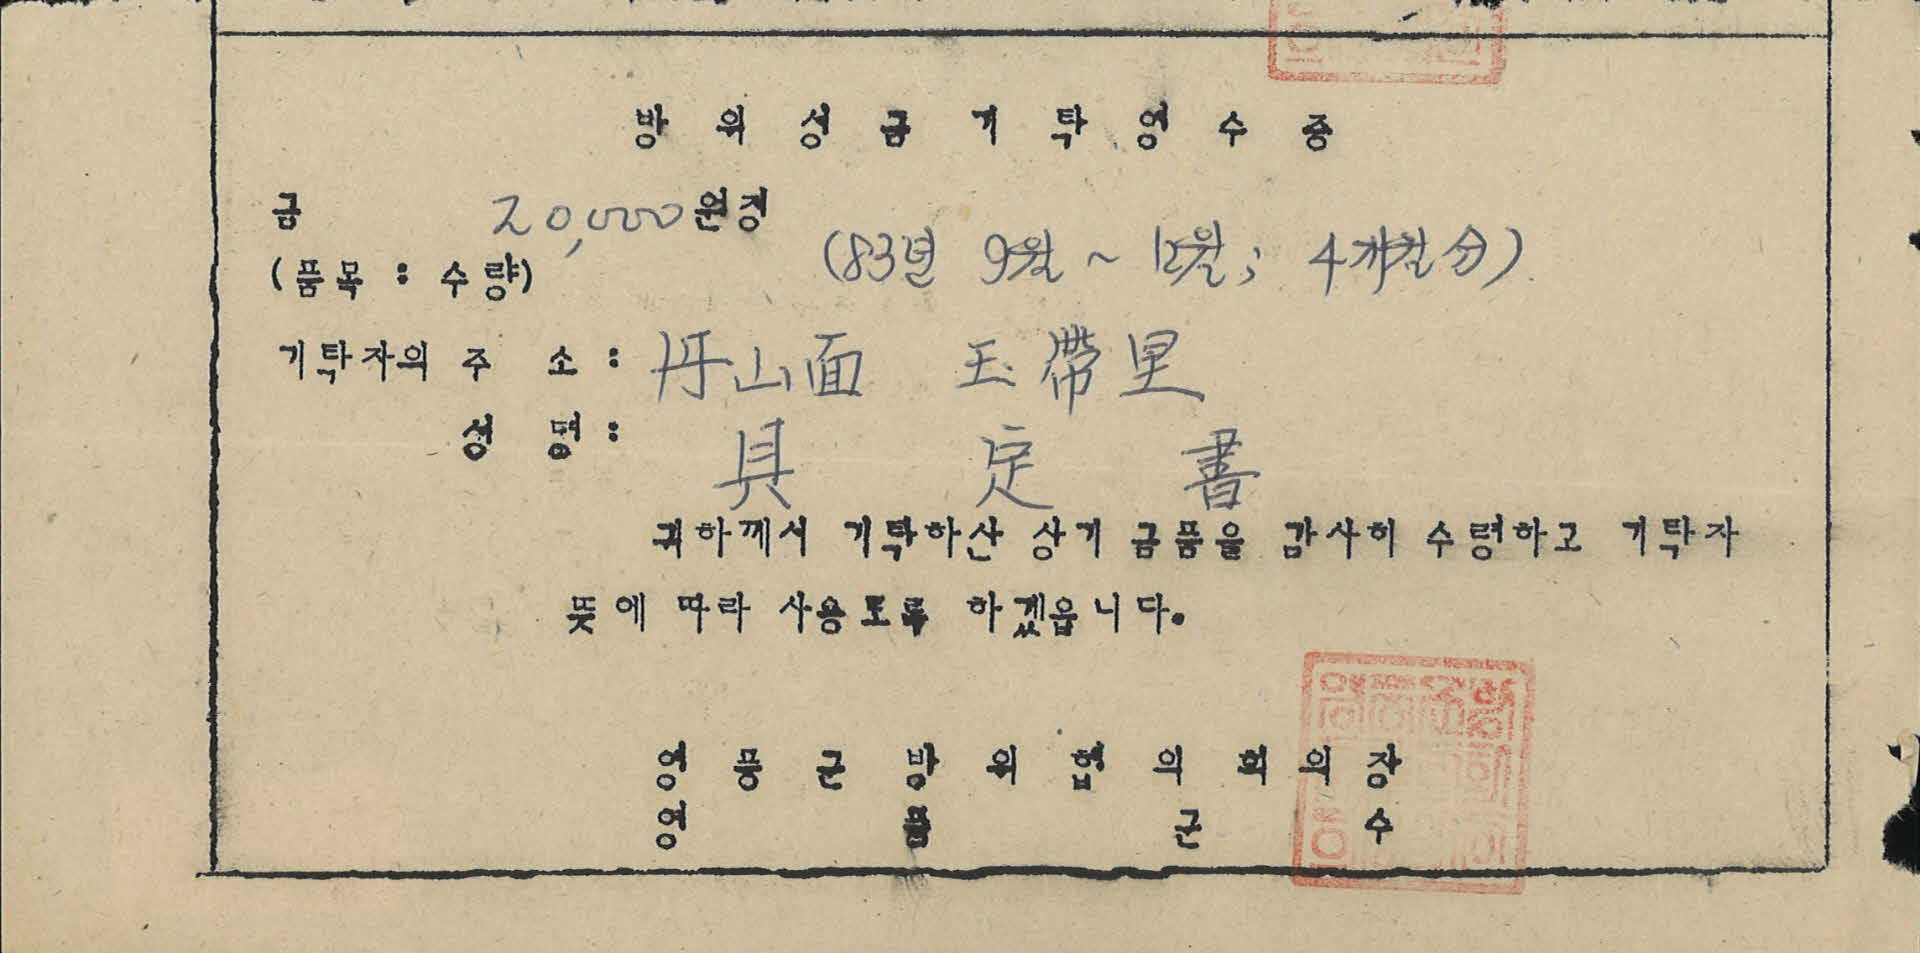 방위성금기탁영수증
금 20,000원정
(83년 9월 ~ 12월; 4개월分)
(품목 : 수량)
기탁자의 주 소 : 丹山面 玉帶里
성 명 : 具 定 書
귀하께서 기탁하산 상기 금품을 감사히 수령하고 기탁자
뜻에 따라 사용토록 하겠읍니다.
영풍군방위협의회의장
영 풍 군 수